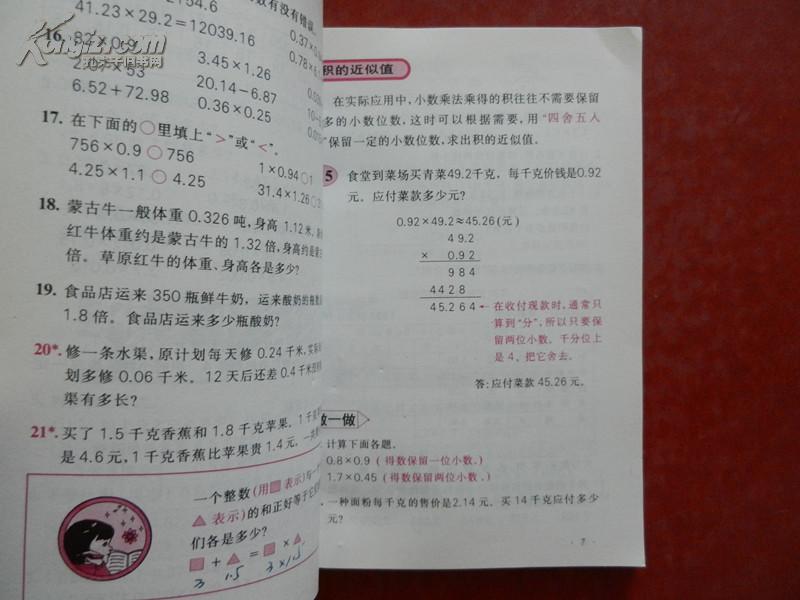 41.23×29.2=12039.16
16.
82×0.9
3.45×1.26
2.07×53
20.14-6.87
6.52+72.98
0.36×0.25
17. 在下面的○里填上“>”或“<”.
756×0.9○756
1×0.94○1
4.25×1.1○4.25
31.4×1.26○
18. 蒙古牛一般体重0.326吨,身高1.12米,
红牛体重约是蒙古牛的1.32倍,身高约是蒙
倍。草原红牛的体重、身高各是多少?
19. 食品店运来350瓶鲜牛奶,运来酸奶的瓶数
1.8倍。食品店运来多少瓶酸奶?
20*. 修一条水渠,原计划每天修0.24千米,实际
划多修0.06千米。12天后还差0.4千米
渠有多长?
21*. 买了1.5千克香蕉和1.8千克苹果。1千克
是4.6元,1千克香蕉比苹果贵1.4元,一共
一个整数(用■表示)与一
▲表示)的和正好等于它
们各是多少?
■+▲=■×▲
3 1.5 3×1.5
积的近似值
在实际应用中,小数乘法乘得的积往往不需要保留
多的小数位数,这时可以根据需要,用“四舍五入
”保留一定的小数位数,求出积的近似值。
5 食堂到菜场买青菜49.2千克,每千克价钱是0.92
元。应付菜款多少元?
0.92×49.2≈45.26(元)
49.2
× 0.92
984
4428
45.264 ←在收付现款时,通常只
算到“分”,所以只要保
留两位小数。千分位上
是4,把它舍去。
答:应付菜款45.26元。
做一做
计算下面各题。
0.8×0.9(得数保留一位小数。)
1.7×0.45(得数保留两位小数。)
一种面粉每千克的售价是2.14元。买14千克应付多少
元?
·7·